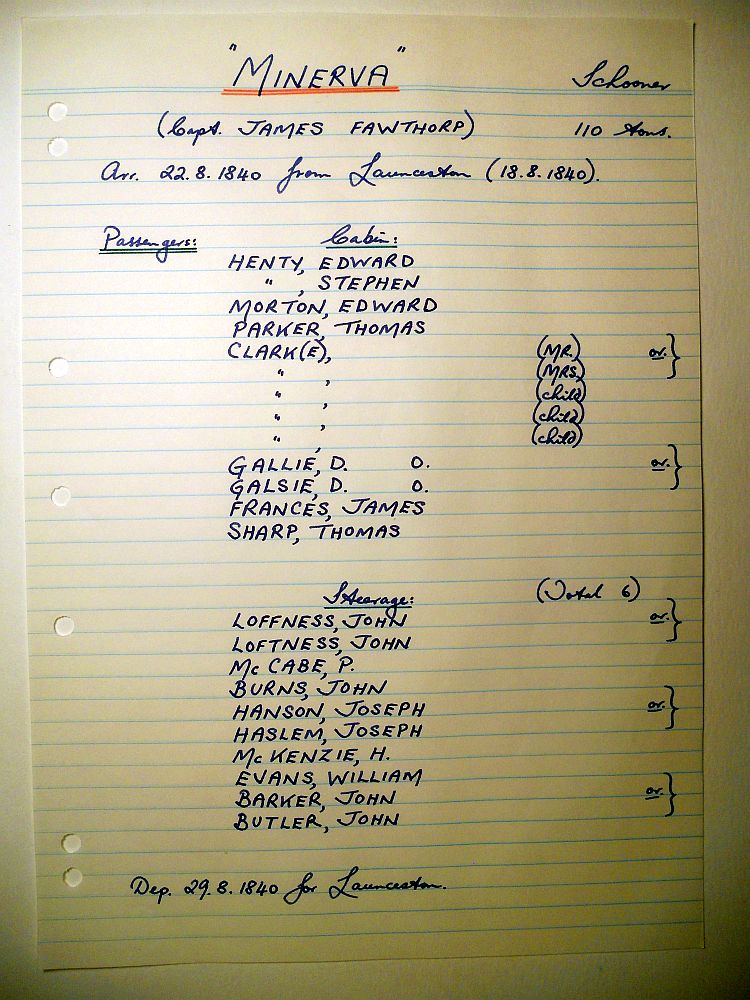 "MINERVA" Schooner
(Capt. JAMES FAWTHORP) 110 tons.
Arr. 22.8.1840 from Launceston (18.8.1840).
Passengers: Cabin:
HENTY, EDWARD
" , STEPHEN
MORTON, EDWARD
PARKER, THOMAS
CLARK(E), (MR.) or. }
" , (MRS.)
" , (child)
" , (child)
" , (child)
GALLIE, D. O. or. }
GALSIE, D. O.
FRANCES, JAMES
SHARP, THOMAS
Steerage: (Total 6)
LOFFNESS, JOHN or. }
LOFTNESS, JOHN
McCABE, P.
BURNS, JOHN
HANSON, JOSEPH or. }
HASLEM, JOSEPH
McKENZIE, H.
EVANS, WILLIAM
BARKER, JOHN or. }
BUTLER, JOHN
Dep. 29.8.1840 for Launceston.